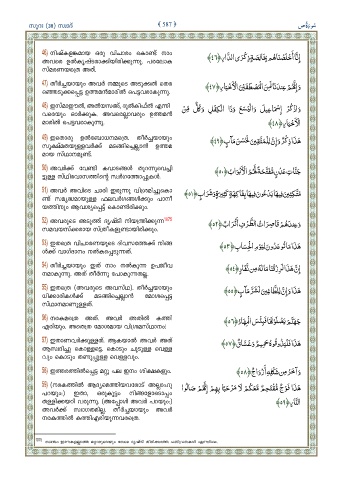 സൂറ (38) സ്വാദ്
587
46) നിഷ്കളങ്കമായ ഒരു വിചാരം കൊണ്ട് നാം
അവരെ ഉൽകൃഷ്ടരാക്കിയിരിക്കുന്നു. പരലോക
സ്മരണയത്രെ അത്.
إِنَّا أَخْلَصْنَاهُم بِخَالِصَةٍ ذِكْرَى الدَّارِ ﴿٤٦﴾
47) തീർച്ചയായും അവർ നമ്മുടെ അടുക്കൽ തെര
ഞ്ഞെടുക്കപ്പെട്ട ഉത്തമൻമാരിൽ പെട്ടവരാകുന്നു.
وَإِنَّهُمْ عِندَنَا لَمِنَ الْمُصْطَفَيْنَ الْأَخْيَارِ ﴿٤٧﴾
48) ഇസ്മാഈൽ, അൽയസഅ്, ദുൽകിഫ്ൽ എന്നി
വരെയും ഓർക്കുക. അവരെല്ലാവരും ഉത്തമൻ
മാരിൽ പെട്ടവരാകുന്നു.
وَاذْكُرْ إِسْمَاعِيلَ وَالْيَسَعَ وَذَا الْكِفْلِ وَكُلٌّ مِّنَ
الْأَخْيَارِ ﴿٤٨﴾
49) ഇതൊരു ഉൽബോധനമത്രെ. തീർച്ചയായും
സൂക്ഷ്മതയുള്ളവർക്ക് മടങ്ങിച്ചെല്ലാൻ ഉത്തമ
മായ സ്ഥാനമുണ്ട്.
هَذَا ذِكْرٌ وَإِنَّ لِلْمُتَّقِينَ لَحُسْنَ مَآبٍ ﴿٤٩﴾
50) അവർക്ക് വേണ്ടി കവാടങ്ങൾ തുറന്നുവെച്ചി
ട്ടുള്ള സ്ഥിരവാസത്തിന്റെ സ്വർഗത്തോപ്പുകൾ.
جَنَّاتِ عَدْنٍ مُّفَتَّحَةً لَّهُمُ الْأَبْوَابُ ﴿٥٠﴾
51) അവർ അവിടെ ചാരി ഇരുന്നു വിശ്രമിച്ചുകൊ
ണ്ട് സമൃദ്ധമായുള്ള ഫലവർഗങ്ങൾക്കും പാനീ
യത്തിനും ആവശ്യപ്പെട്ട് കൊണ്ടിരിക്കും.
مُتَّكِئِينَ فِيهَا يَدْعُونَ فِيهَا بِفَاكِهَةٍ كَثِيرَةٍ وَشَرَابٍ ﴿٥١﴾
52) അവരുടെ അടുത്ത് ദൃഷ്ടി നിയന്ത്രിക്കുന്ന
സമവയസ്ക്കരായ സ്ത്രീകളുണ്ടായിരിക്കും.
وَعِندَهُمْ قَاصِرَاتُ الطَّرْفِ أَتْرَابٌ ﴿٥٢﴾
53) ഇതത്രെ വിചാരണയുടെ ദിവസത്തേക്ക് നിങ്ങ
ൾക്ക് വാഗ്ദാനം നൽകപ്പെടുന്നത്.
هَذَا مَا تُوعَدُونَ لِيَوْمِ الْحِسَابِ ﴿٥٣﴾
54) തീർച്ചയായും ഇത് നാം നൽകുന്ന ഉപജീവ
നമാകുന്നു. അത് തീർന്നു പോകുന്നതല്ല.
إِنَّ هَذَا لَرِزْقُنَا مَا لَهُ مِن نَّفَادٍ ﴿٥٤﴾
55) ഇതത്രെ (അവരുടെ അവസ്ഥ). തീർച്ചയായും
ധിക്കാരികൾക്ക് മടങ്ങിച്ചെല്ലാൻ മോശപ്പെട്ട
സ്ഥാനമാണുള്ളത്.
هَذَا وَإِنَّ لِلطَّاغِينَ لَشَرَّ مَآبٍ ﴿٥٥﴾
56) നരകമത്രെ അത്. അവർ അതിൽ കത്തി
എരിയും. അതെത്ര മോശമായ വിശ്രമസ്ഥാനം!
جَهَنَّمَ يَصْلَوْنَهَا فَبِئْسَ الْمِهَادُ ﴿٥٦﴾
57) ഇതാണവർക്കുള്ളത്. ആകയാൽ അവർ അത്
ആസ്വദിച്ചു കൊള്ളട്ടെ. കൊടും ചൂടുള്ള വെള്ള
വും കൊടും തണുപ്പുള്ള വെള്ളവും.
هَذَا فَلْيَذُوقُوهُ حَمِيمٌ وَغَسَّاقٌ ﴿٥٧﴾
58) ഇത്തരത്തിൽപ്പെട്ട മറ്റു പല ഇനം ശിക്ഷകളും.
وَآخَرُ مِن شَكْلِهِ أَزْوَاجٌ ﴿٥٨﴾
59) (നരകത്തിൽ ആദ്യമെത്തിയവരോട് അല്ലാഹു
പറയും): ഇതാ, ഒരുകൂട്ടം നിങ്ങളോടൊപ്പം
തള്ളിക്കയറി വരുന്നു. (അപ്പോൾ അവർ പറയും):
അവർക്ക് സ്വാഗതമില്ല. തീർച്ചയായും അവർ
നരകത്തിൽ കത്തിഎരിയുന്നവരത്രെ.
هَذَا فَوْجٌ مُّقْتَحِمٌ مَّعَكُمْ لَا مَرْحَبًا بِهِمْ إِنَّهُمْ صَالُوا
النَّارِ ﴿٥٩﴾